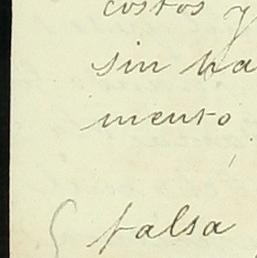 costos y
sin ha
mento
falsa